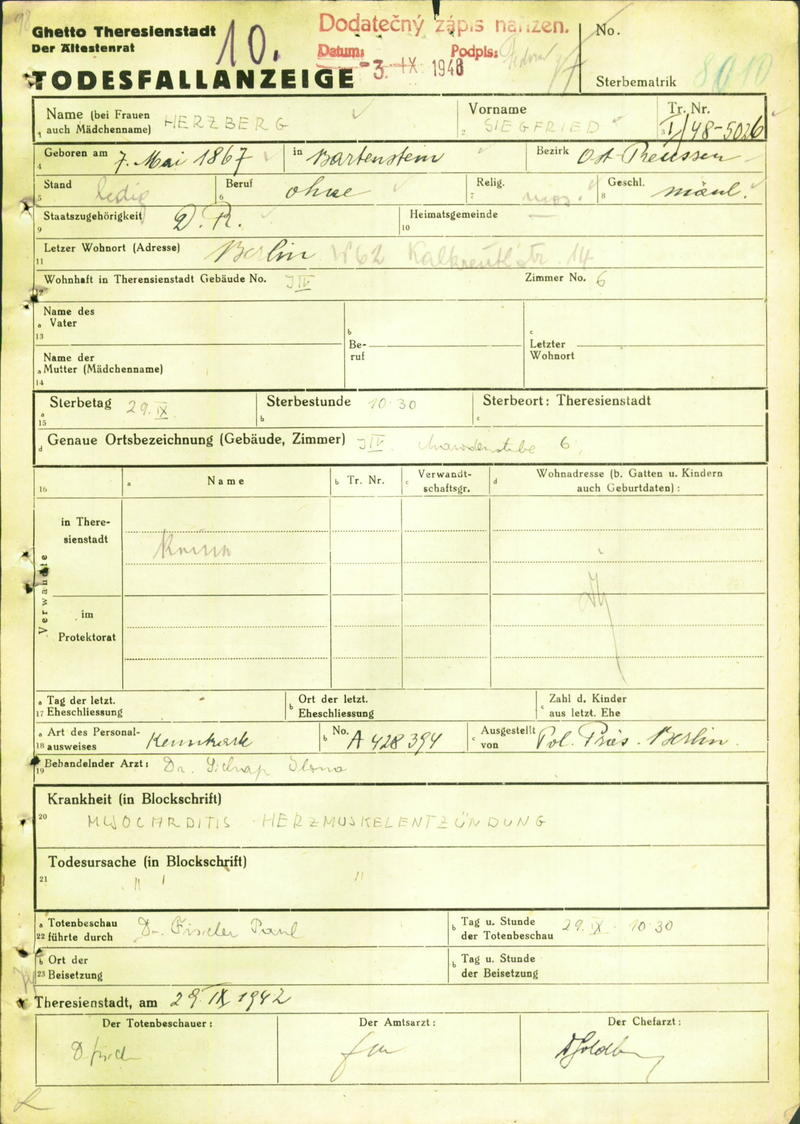 Ghetto Theresienstadt
Der Ältestenrat
10.
Dodatečný zápis nařízen.
Datum: -3. IX 1948 Podpis:
No.
TODESFALLANZEIGE
Sterbematrik 8010
Name (bei Frauen auch Mädchenname) HERZBERG
1
Vorname SIEGFRIED
2
Tr. Nr. I/48-5026
3
Geboren am 7. Mai 1867 in Bartenstein Bezirk Ost-Preussen
4
Stand ledig Beruf ohne Relig. mos. Geschl. mänl.
5 6 7 8
Staatszugehörigkeit D.R. Heimatsgemeinde —
9 10
Letzer Wohnort (Adresse) Berlin W62 Kalkreuthstr. 14
11
Wohnhaft in Theresienstadt Gebäude No. JIV Zimmer No. 6
12
Name des
a Vater
13
b Beruf
c Letzter Wohnort
Name der
a Mutter (Mädchenname)
14
Sterbetag 29. IX Sterbestunde 10·30 Sterbeort: Theresienstadt
a 15 b c
d Genaue Ortsbezeichnung (Gebäude, Zimmer) JIV Marodenstube 6
16 a Name b Tr. Nr. c Verwandtschaftsgr. d Wohnadresse (b. Gatten u. Kindern auch Geburtdaten) :
Verwandte
in Theresienstadt
im Protektorat
a Tag der letzt.
17 Eheschliessung
b Ort der letzt. Eheschliessung
c Zahl d. Kinder aus letzt. Ehe
a Art des Personal-
18 ausweises Kennkarte
b No. A 428394
c Ausgestellt von Pol. Präs. Berlin.
Behandelnder Arzt: Dr. Ilona
19
Krankheit (in Blockschrift)
20 MYOCARDITIS HERZMUSKELENTZÜNDUNG
Todesursache (in Blockschrift)
21 " "
a Totenbeschau
22 führte durch Dr. Fischer Paul
b Tag u. Stunde der Totenbeschau 29. IX. 10·30
b Ort der
23 Beisetzung
b Tag u. Stunde der Beisetzung
Theresienstadt, am 29. IX 1942
Der Totenbeschauer: Der Amtsarzt: Der Chefarzt: